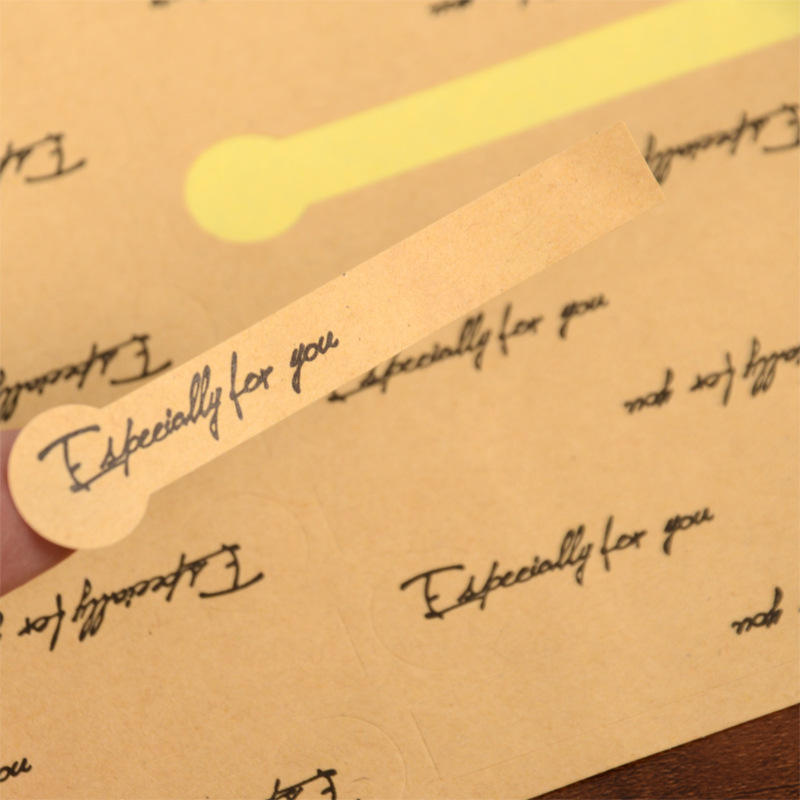 Especially
Especially for you
Especially for you
Especially
Especially for you
for you
Especially for
Especially for you
you
Especially